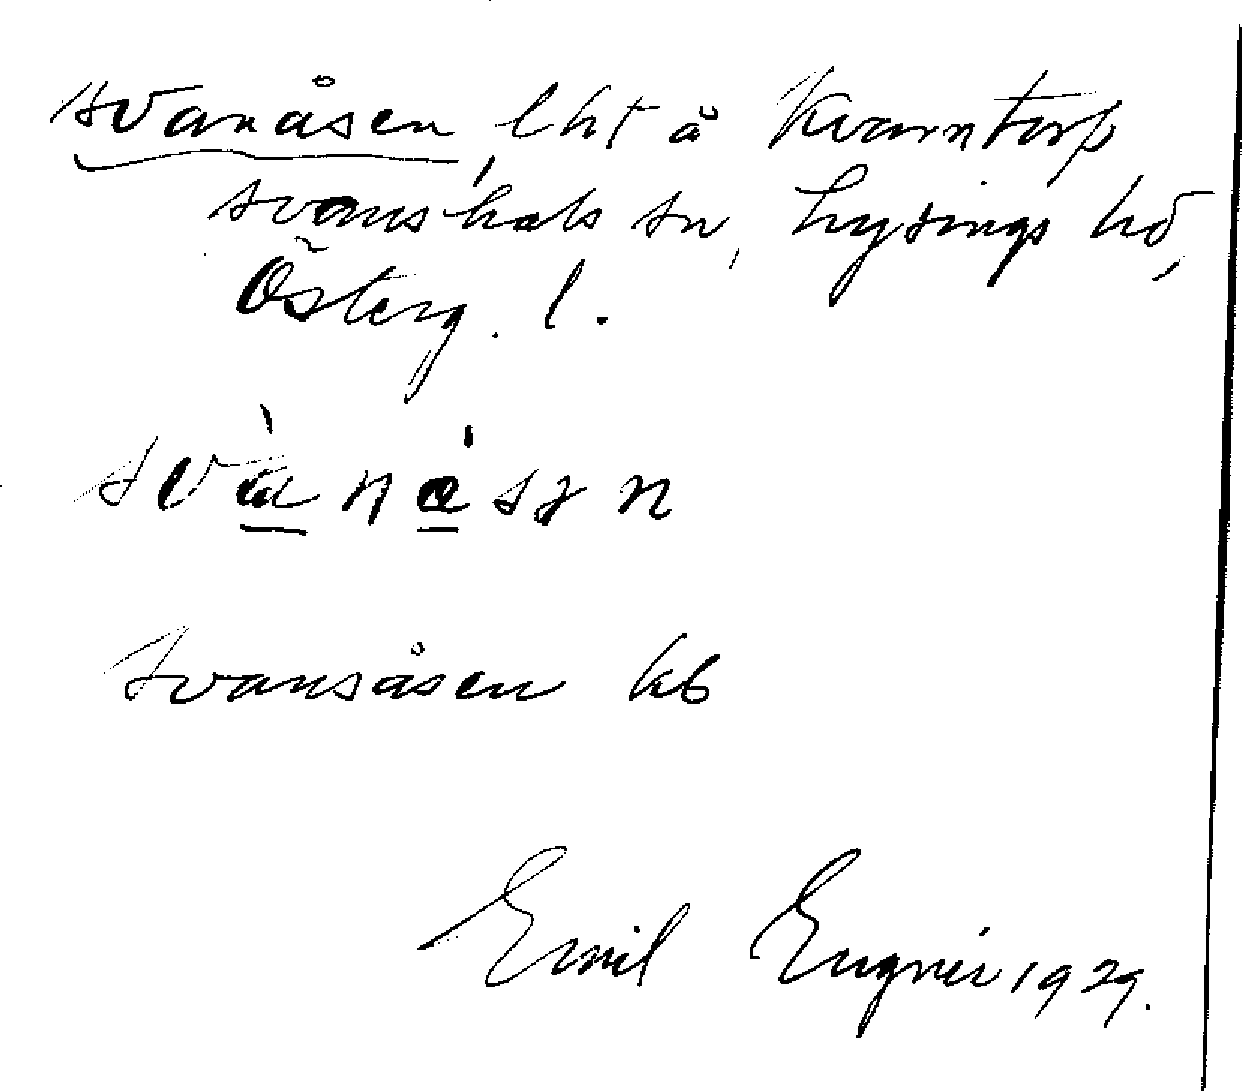 Svanåsen, lht å Kvarntorp
Svanshals sn, Lysings hd,
Österg. l.
svànåsən
Svansåsen kb
Emil Engnér 1929.